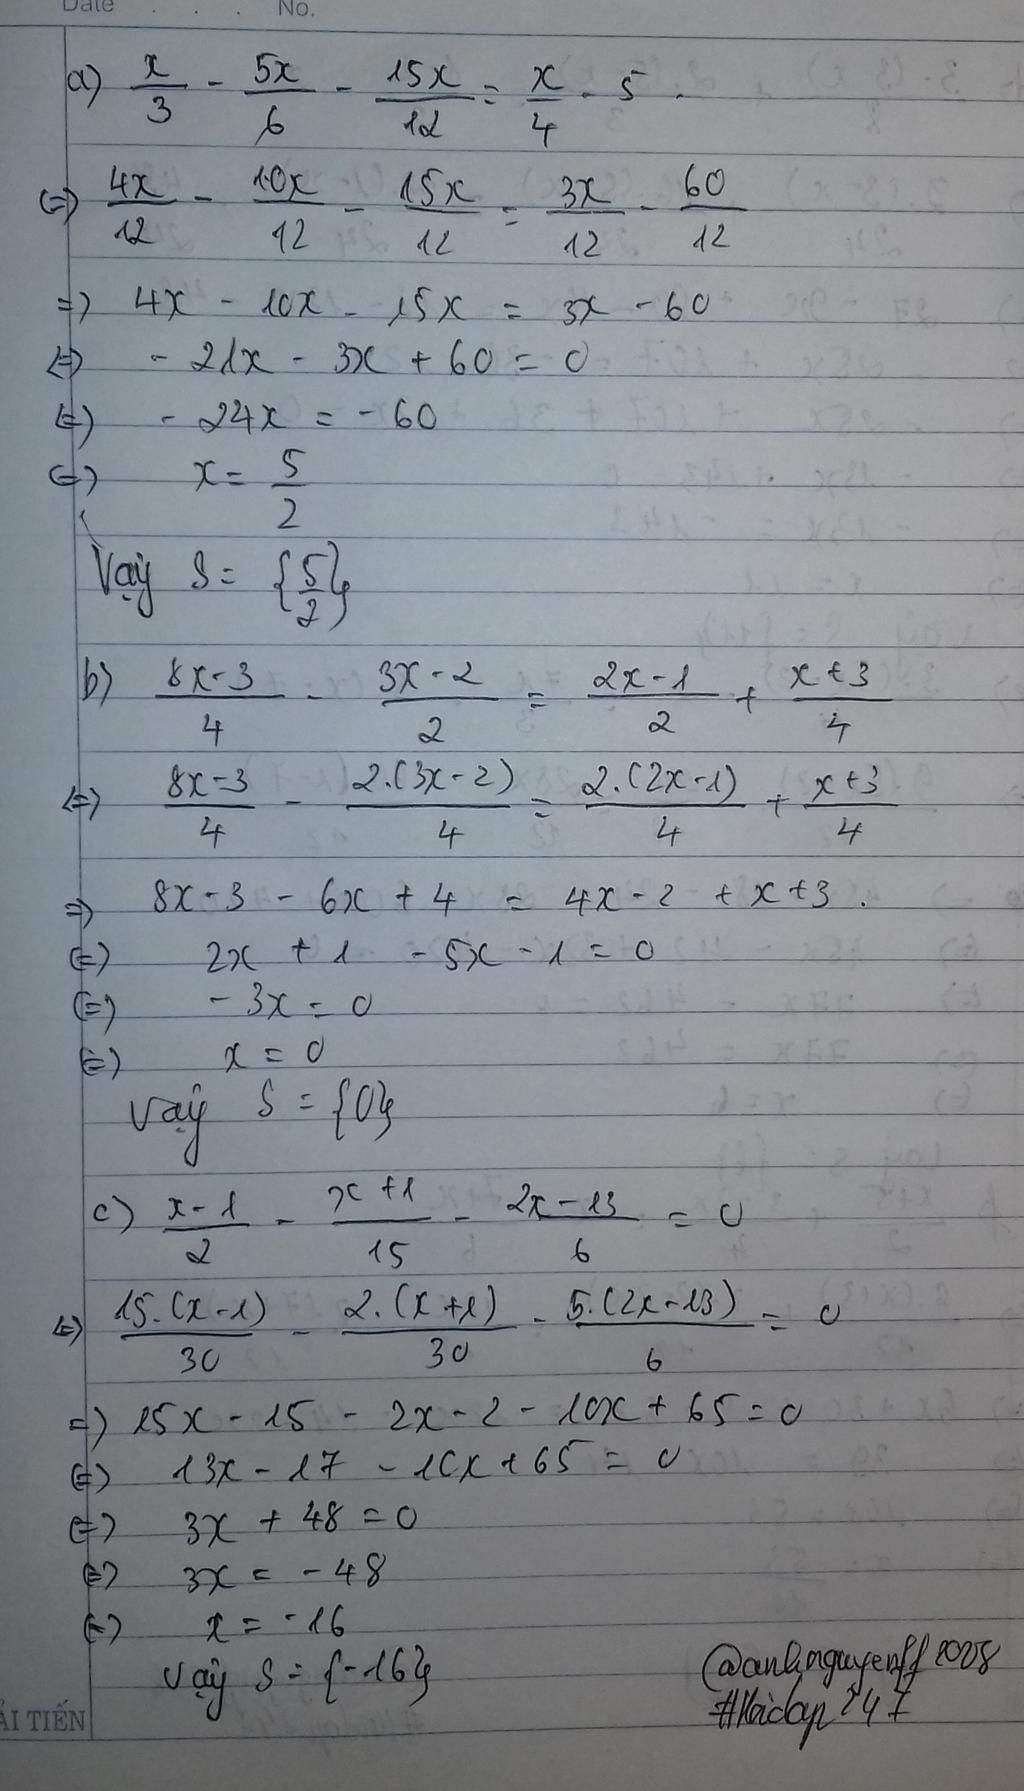 Date . . . No.
a) x/3 - 5x/6 - 15x/12 = x/4 - 5.
(=) 4x/12 - 10x/12 - 15x/12 = 3x/12 - 60/12
=) 4x - 10x - 15x = 3x - 60
(=) - 21x - 3x + 60 = 0
(=) - 24x = - 60
(=) x = 5/2
Vậy S = {5/2}
b) 8x-3/4 - 3x-2/2 = 2x-1/2 + x+3/4
(=) 8x-3/4 - 2.(3x-2)/4 = 2.(2x-1)/4 + x+3/4
=) 8x-3 - 6x + 4 = 4x-2 + x+3.
(=) 2x + 1 - 5x - 1 = 0
(=) - 3x = 0
(=) x = 0
Vậy S = {0}
c) x-1/2 - x+1/15 - 2x-13/6 = 0
(=) 15.(x-1)/30 - 2.(x+1)/30 - 5.(2x-13)/6 = 0
=) 15x - 15 - 2x - 2 - 10x + 65 = 0
(=) 13x - 17 - 10x + 65 = 0
(=) 3x + 48 = 0
(=) 3x = - 48
(=) x = - 16
Vậy S = {-16}
@anhnguyenff2008
#Hoidap247
ẢI TIẾN